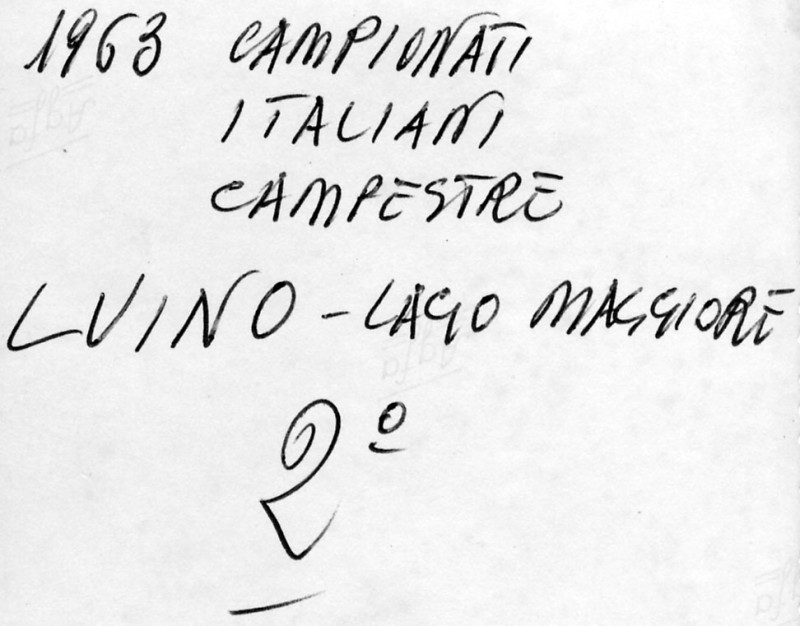 1963 CAMPIONATI
ITALIANI
CAMPESTRE
LUINO - LAGO MAGGIORE
2º
Agfa
Agfa
Agfa